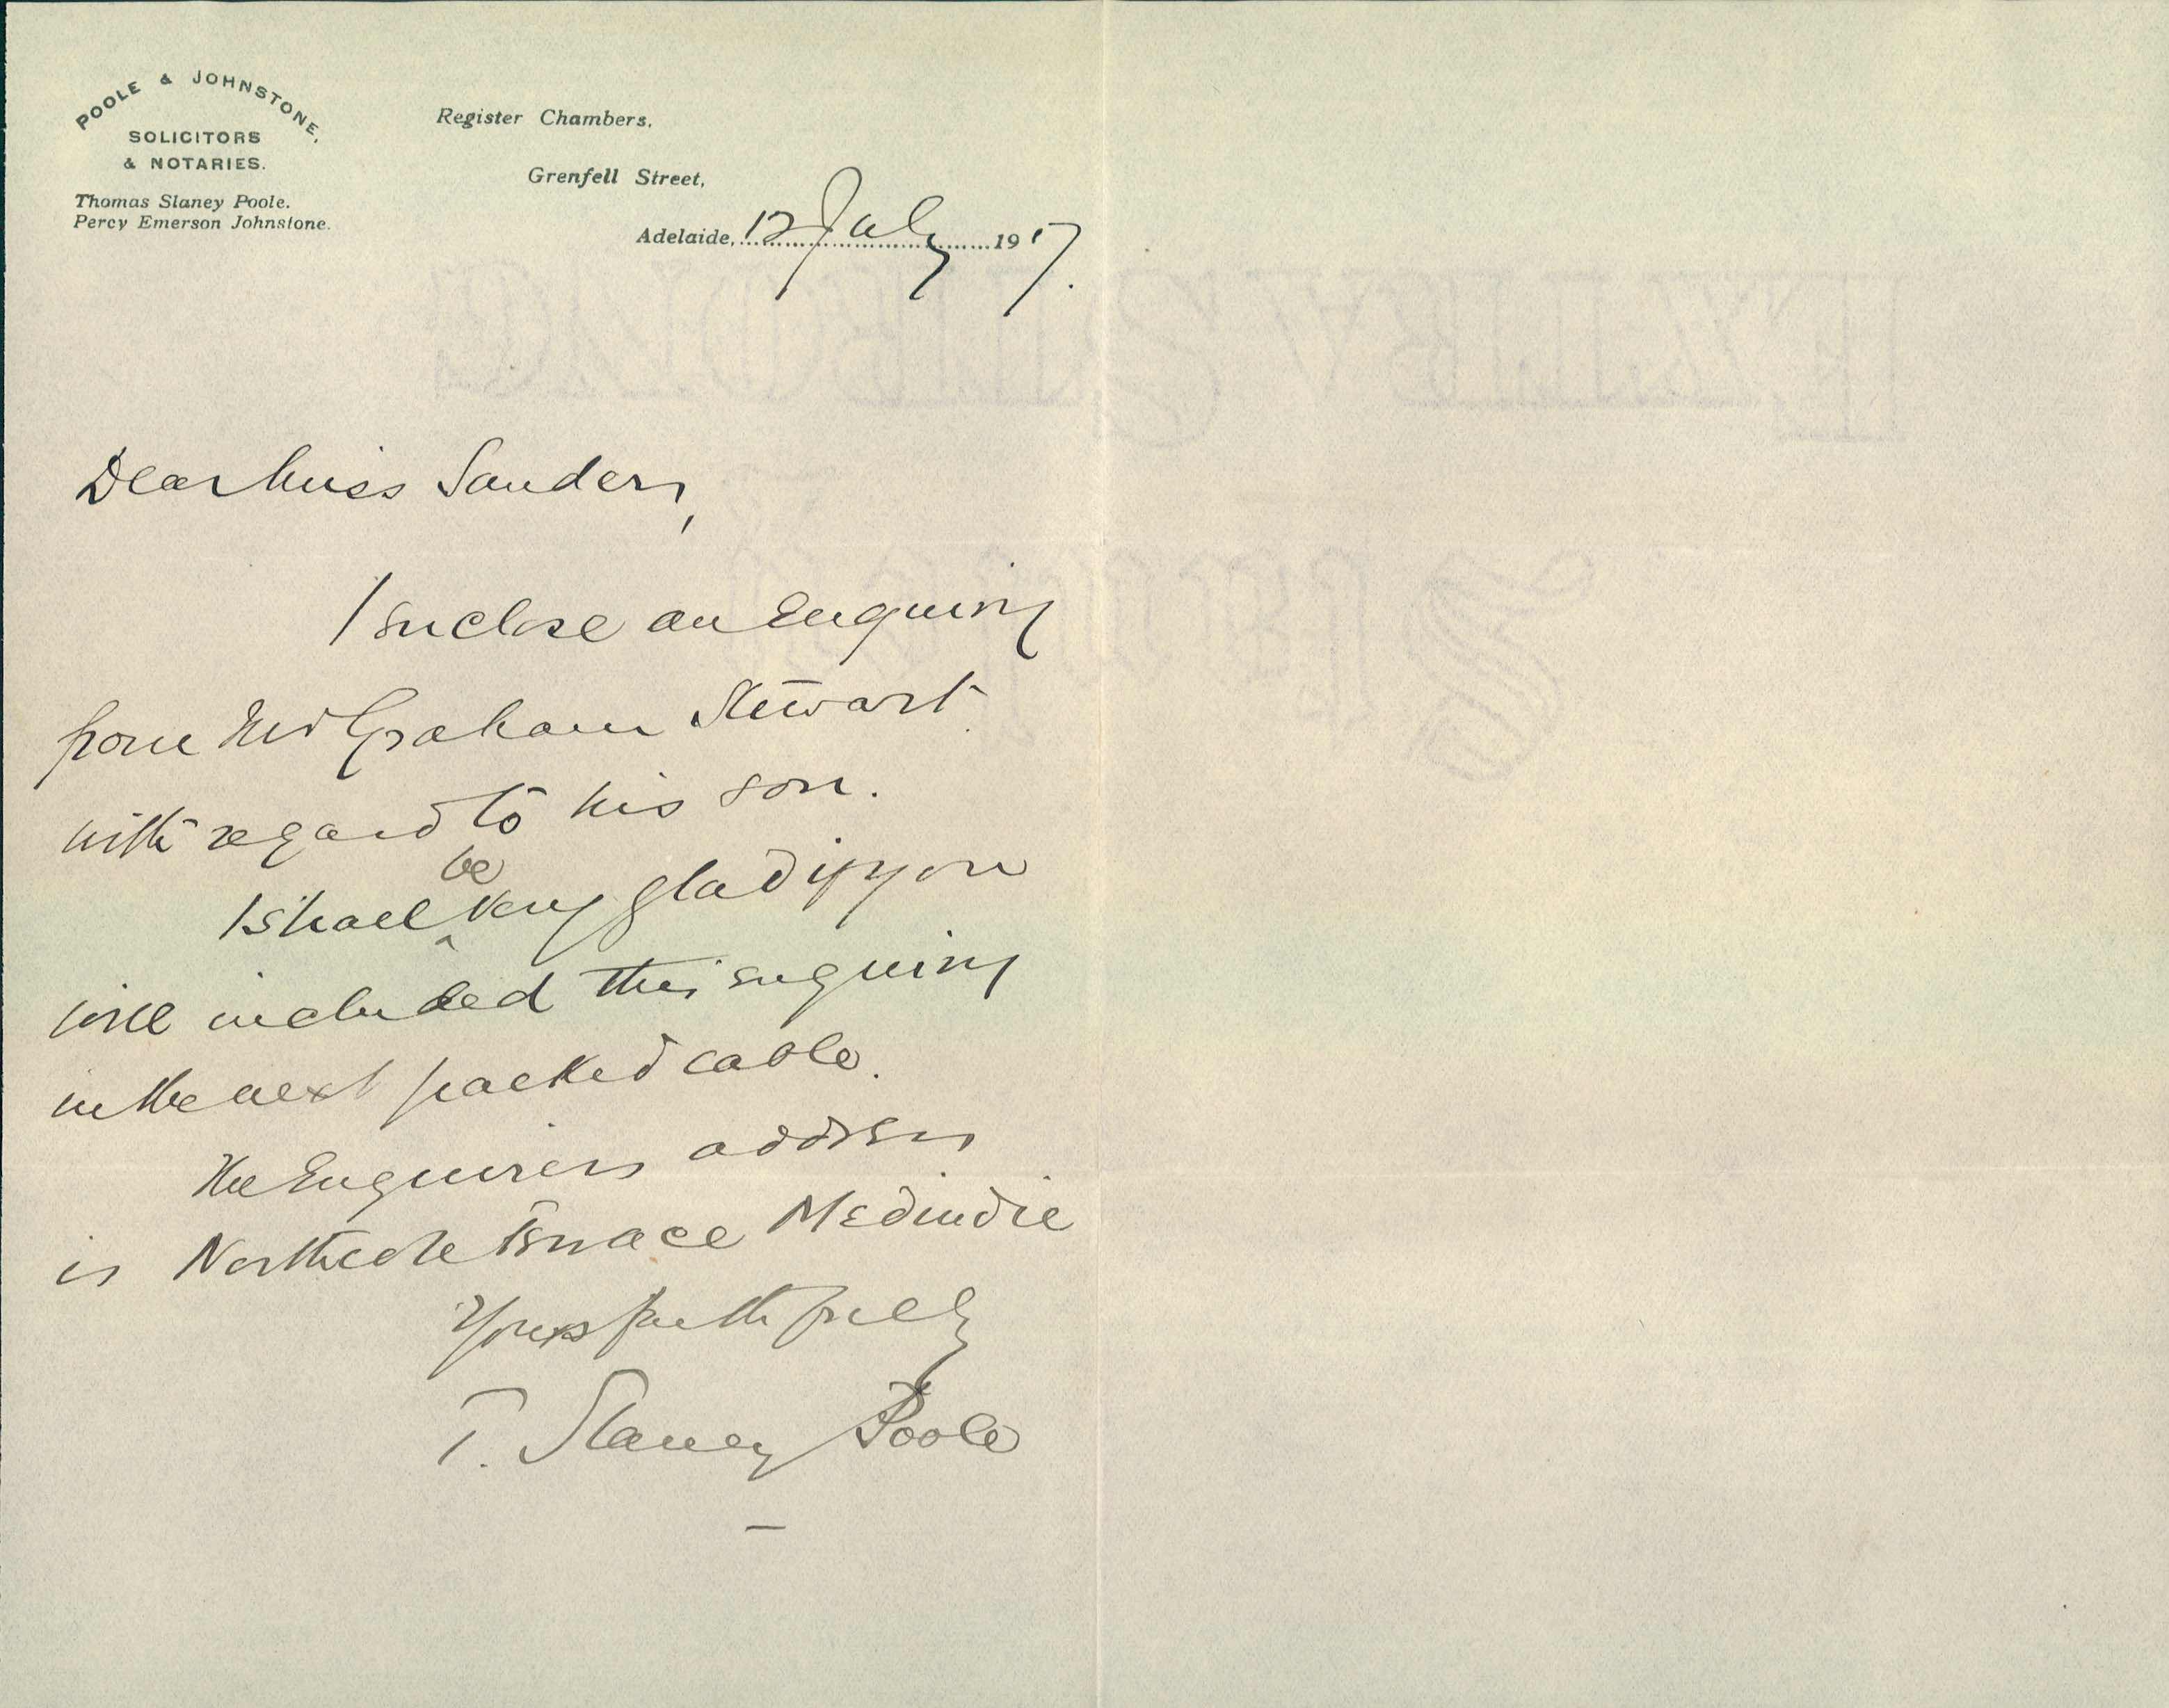 POOLE & JOHNSTONE,
SOLICITORS
& NOTARIES.
Thomas Slaney Poole.
Percy Emerson Johnstone.
Register Chambers,
Grenfell Street,
Adelaide, 12 July 1917.
Dear Miss Sanders,
I enclose an Enquiry
from Mr Graham Stewart
with regard to his son.
I shall be very glad if you
will included this enquiry
in the next packed cable.
The Enquirers address
is Northcote Terrace Medindie
Yours faithfully
T. Slaney Poole